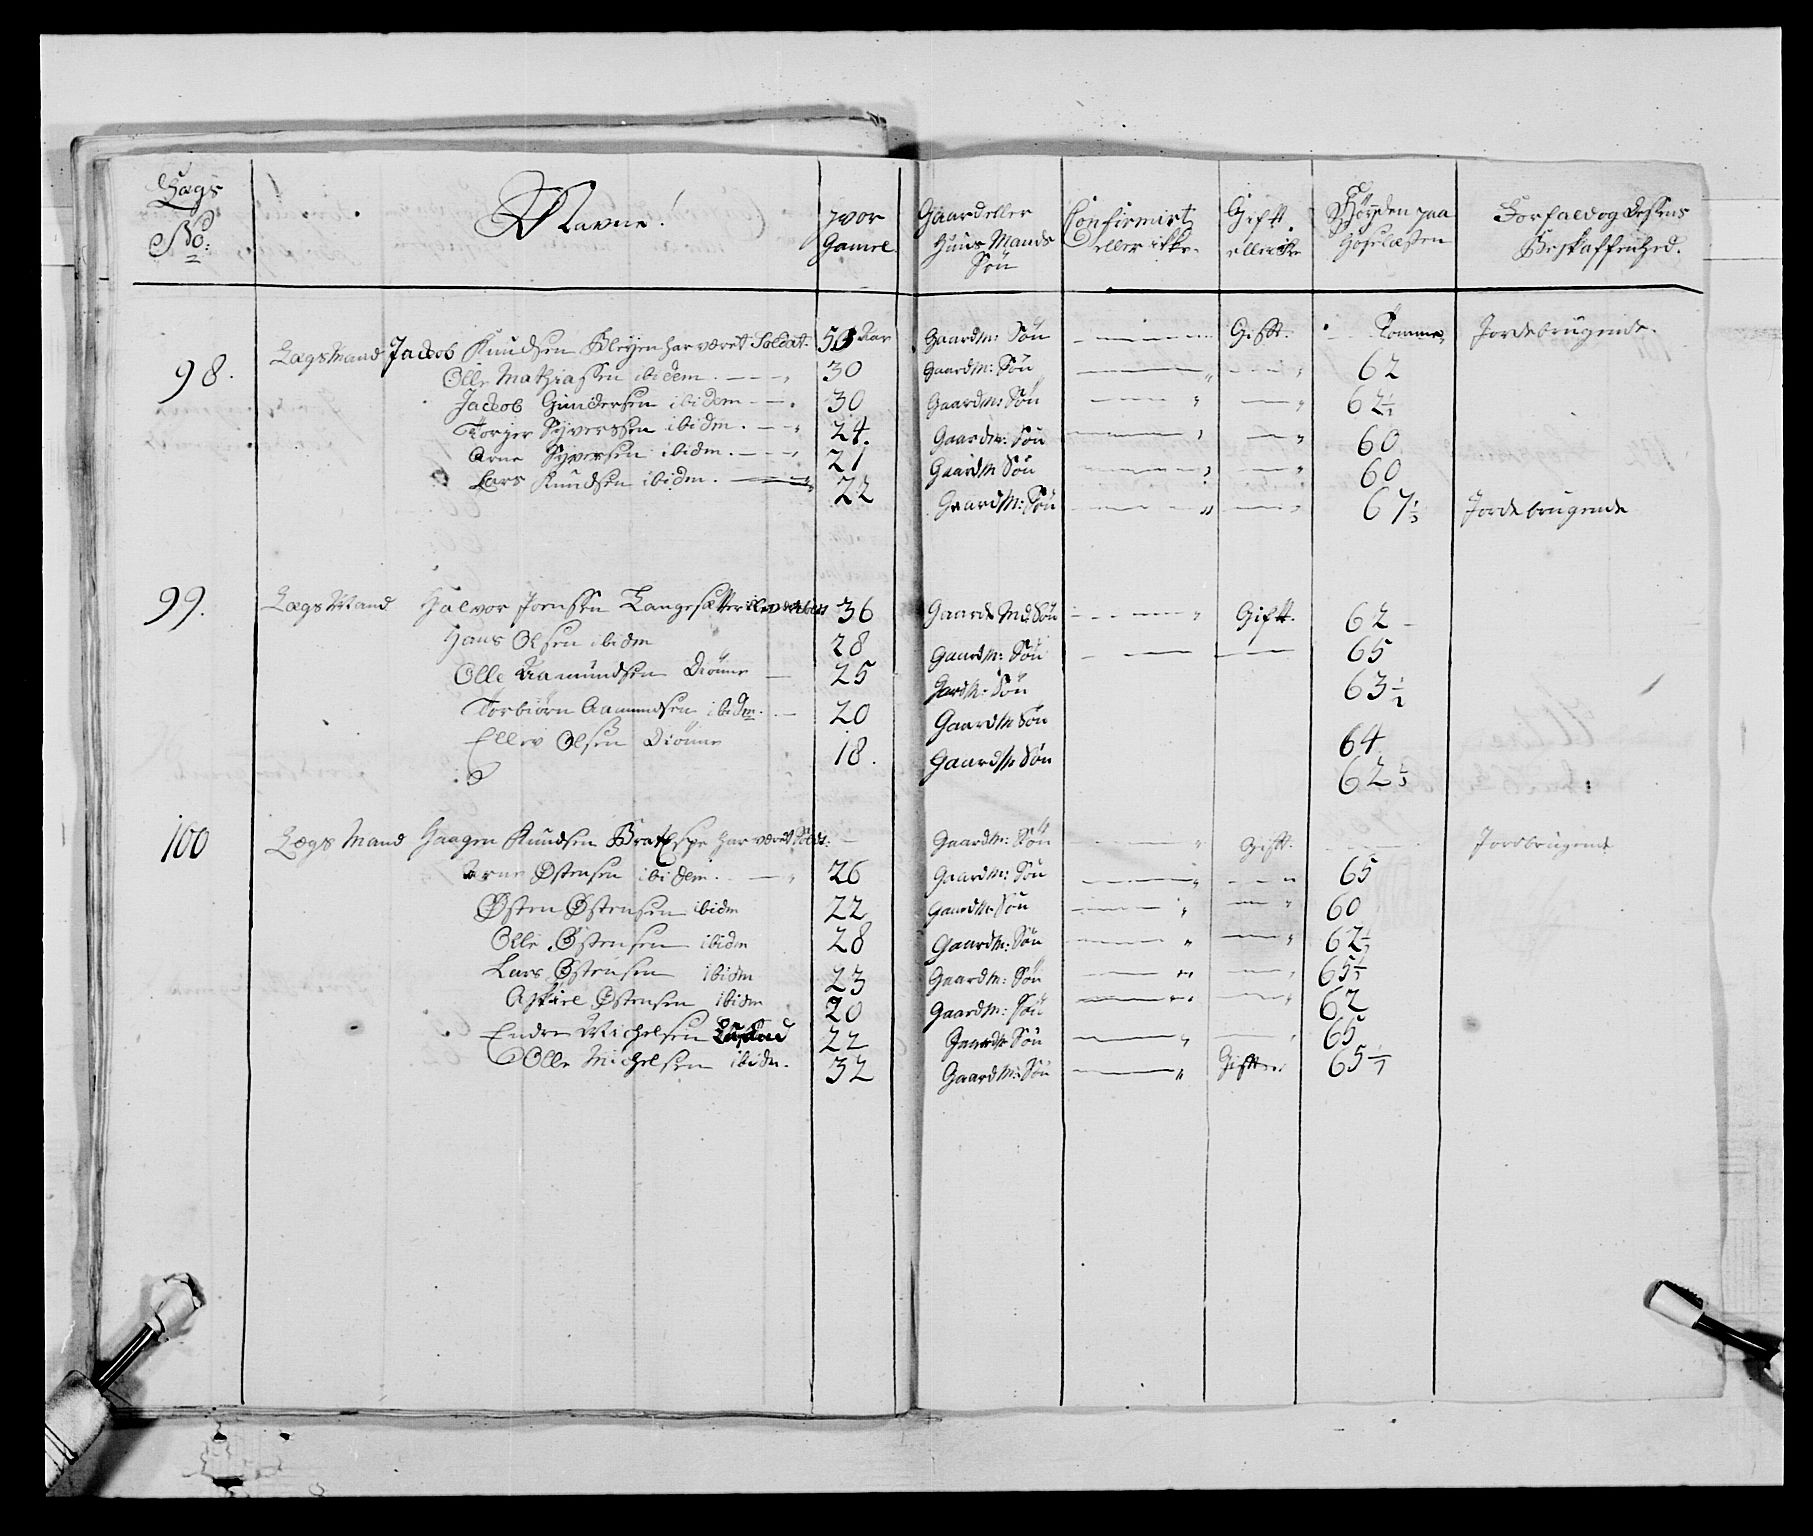 Lægs No: Navne! hvor Gamel Gaard eller Huus Mands Søn Confirmirt eller ikke. Gift eller ikke Høyden paa Hoselæsten Forfald og dessens Beskaffenhed.
98. Lægs Mand Jacob Knudsen Bleyen har været Soldat. 50 Aar Gaardm: Søn Gift. Tomme Jordebrugende.
Olle Mathiassen ibidem. 30 Gaardm: Søn 62
Jacob Gundersen ibidem 30 Gaardm: Søn 62 1/2
Torger Syversen ibidm. 24. Gaardm: Søn 60
Arne Syversen ibidm. 21 Gaardm Søn 60
Lars Knudsen ibidm. 22 Gaardm: Søn 67 1/3 Jordebrugende
99. Lægs Mand Halvor Jonssen Langesætter 36 Gaards Md: Søn Gift. 62
Hans Olsen ibidm 28 Gaardm: Søn 65
Olle Aamundsen Diønne 25 Gardm: Søn 63 1/2
Torbiørn Aamundsen ibidm. 20 Gaardm Søn
Ellev Olsen Diønne 18. Gaardm Søn 64
62 1/3
100 Lægs Mand Haagen Knudsen Bratespe har været Soldt: Gaardm: Søn Gift. Jordbrugende
Arne Østensen ibidem. 26 Gaardm: Søn 65
Østen Østensen ibidm 22 Gaardm Søn 60
Olle Østensen ibidm 28 Gaardm: Søn 62 1/2
Lars Østensen ibidm 23 Gaardm: Søn 65 1/2
Askiel Østensen ibidm 20 Gaardm: Søn 62
Endre Michelsen 22 Gaardm Søn 65
Olle Michelsen ibidm. 32 Gaardm: Søn Gift 65 1/2